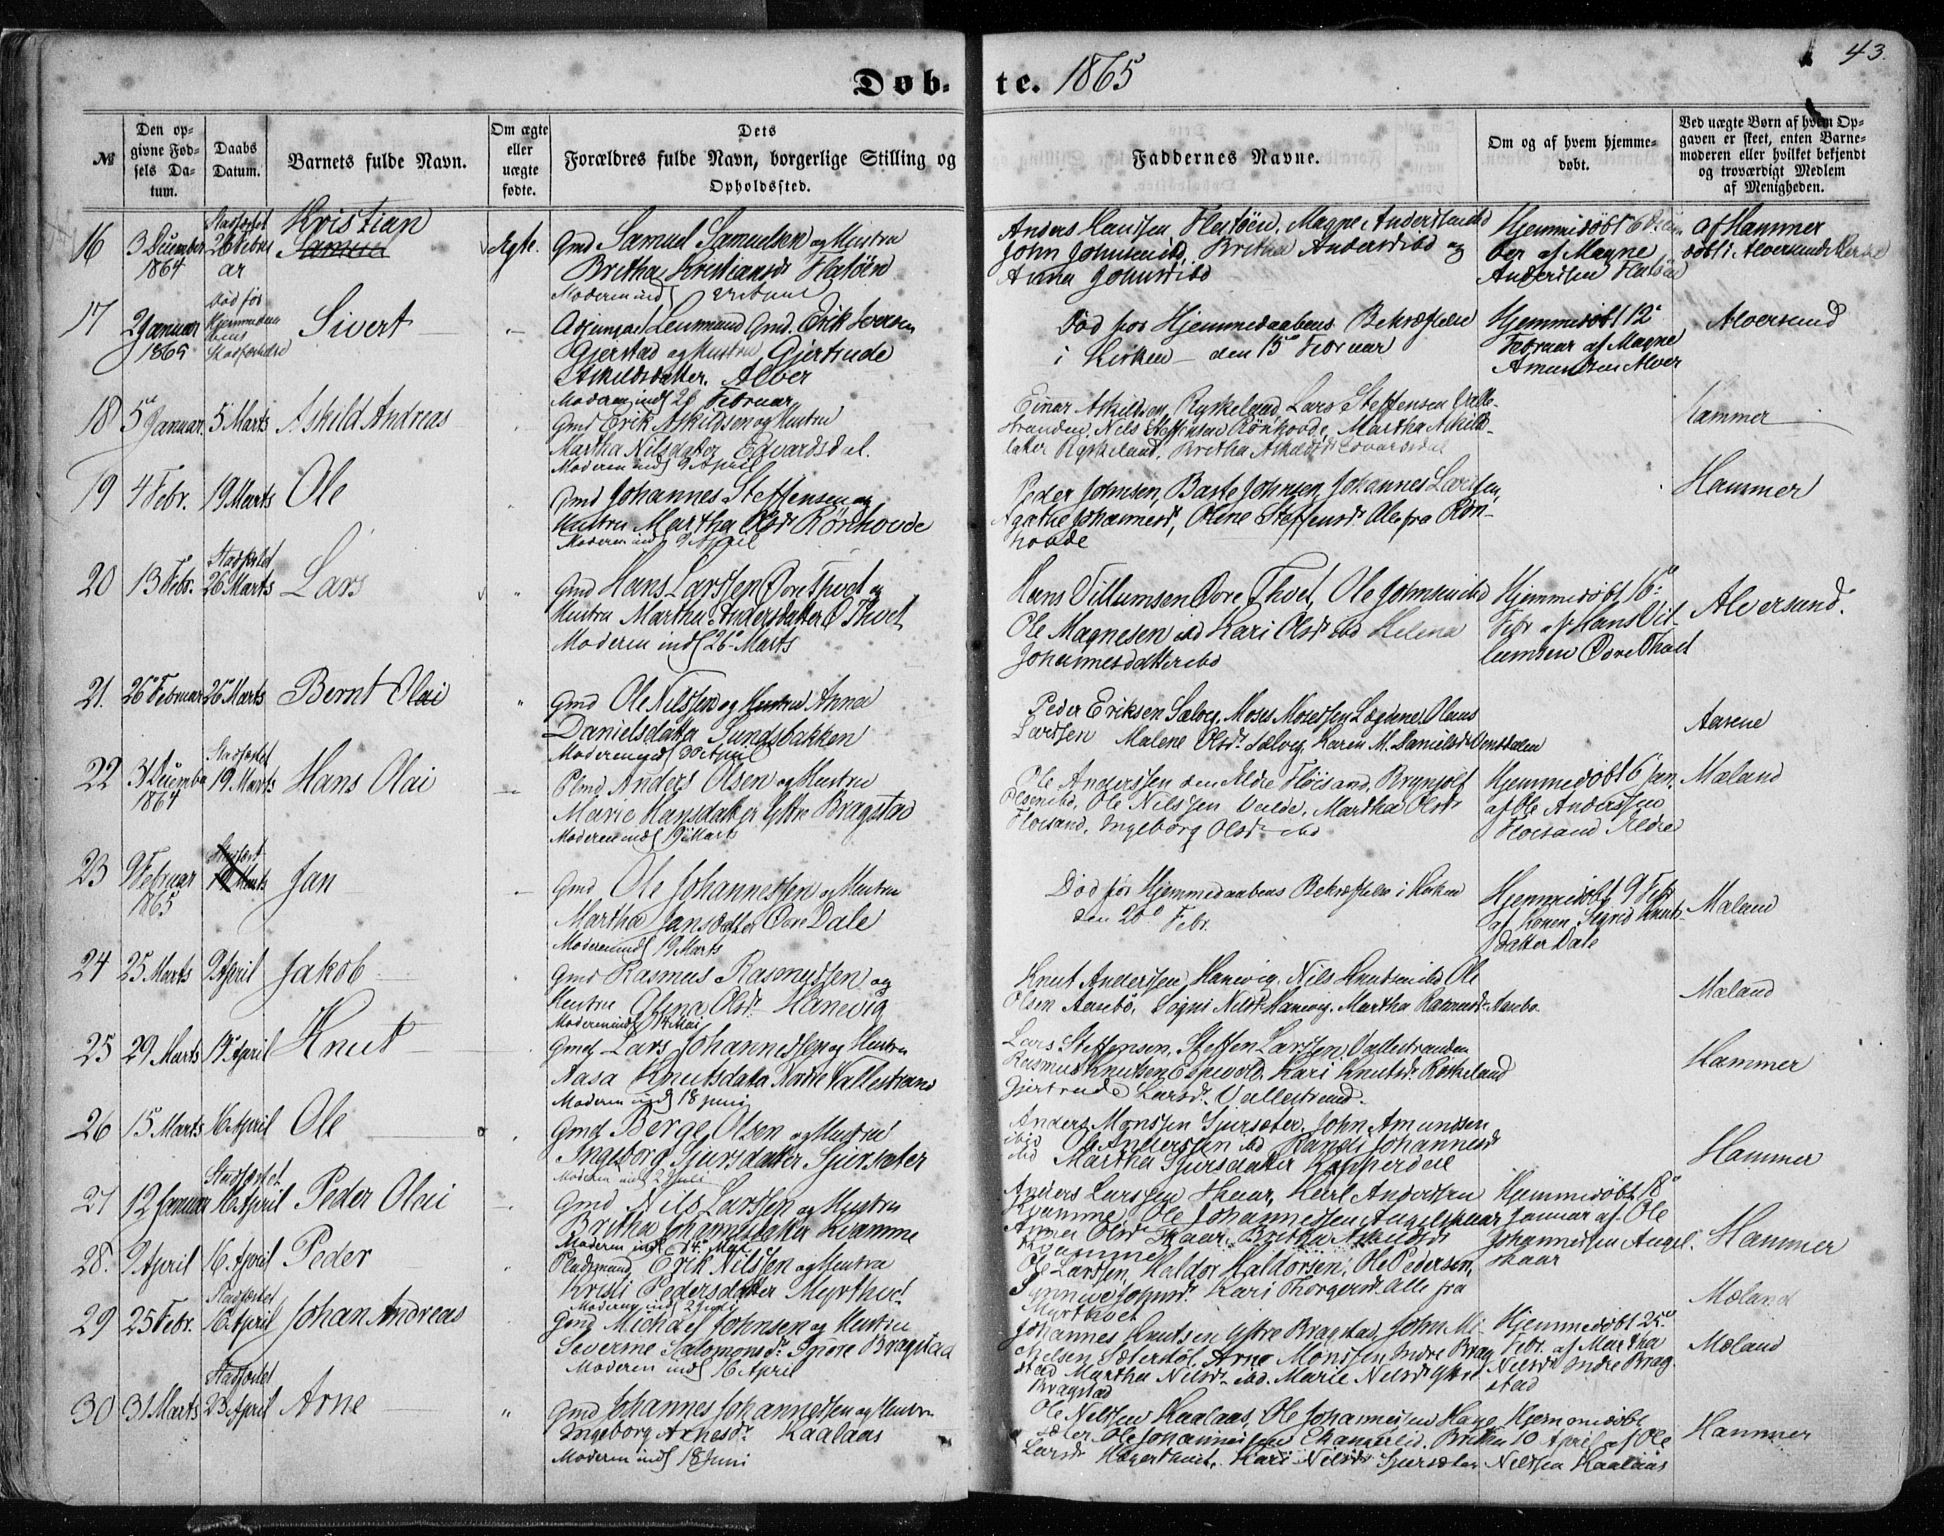 43.
Døb-te. 1865
№
Den op-
givne Fød-
sels Da-
tum.
Daabs
Datum.
Barnets fulde Navn.
Om ægte
eller
uægte
fødte.
Dets
Forældres fulde Navn, borgerlige Stilling og
Opholdssted.
Faddernes Navne.
Om og af hvem hjemme-
døbt.
Ved uægte Børn af hvem Op-
gaven er skeet, enten Barne-
moderen eller hvilket bekjendt
og troværdigt Medlem
af Menigheden.
16 3 December 1864
Stadfæstet 26 Febru ar
Kristian
Samuel
Ægte.
Gmd Samuel Samuelsen og Hustru
Britha Kristiansdr Flatøen
Anders Hanssen Flatøen, Magne Anderssen ibd
John Johnsen ibd, Britha Andersdr ibd og
Anna Johnsdr ibd
Hjemmedøbt 6 Decem
ber af Magne
Anderssen Flatøen
af Hammer
døbt i Alversunds Kirke
17 2 Januar 1865
Død før
Hjemmedaa
bens
Stadfæstelse
Sivert
Gmd. Erik Iversen
Gjerstad og Hustru Gjertrude
Askildsdatter. Alver
Moderen inds 26 Februar
Død før Hjemmedaabens Bekræftelse
i Kirken - den 15de Februar
Hjemmedøbt 12te
Februar af Magne
Amundsen Alver
Alversund
18 5 Januar. 5 Marts Askild Andreas
Gmd Erik Askildsen og Hustru
Martha Nilsdatter Edvardsdal.
Moderen inds 9 April
Einar Askildsen, Ryskeland, Lars Steffensen
Nils Steffensen Rønhovde, Martha Askilds-
datter Ryskeland, Britha Askildsdr Edvardsdal
Hammer
19 4 Febr. 19 Marts Ole
Gmd Johannes Steffensen og
Hustru Martha Olsdr Rønhovde
Moderen inds 9 April
Peder Johnsen, Baste Johnsen, Johannes Larssen,
Agathe Johannesdr, Oline Steffensdr Alle fra Røn-
hovde
Hammer
20 13 Febr. Stadfæstet 26 Marts Lars
Gmd Hans Larssen Øvre Thvet og
Hustru Martha Andersdatter Ø Thvet
Moderen inds 26 Marts
Hans Villumsen Øvre Thvet, Ole Johnsen ibd
Ole Magnesen ibd Kari Olsdr ibd Helena
Johannesdatter ibd
Hjemmedøbt 16de
Febr af Hans Vil-
lumsen Øvre Thvet
Alversund.
21. 26 Februar 26 Marts Bernt Olai
Gmd Ole Nilssen og Hustru Anna
Danielsdatter Sundsbakken
Peder Eriksen Sælvig, Moses Mosessen Løgene, Olaus
Larssen Malene Olsdr Sælvig, Karen M. Danielsdr
Aasene
22 31 December 1864 Stadfæstet 19 Marts Hans Olai
Plmd Anders Olsen og Hustru
Marie Hansdatter Ystre Bragstad
Moderen inds 19 Marts
Ole Anderssen den Ældre Floisand, Brynjolf
Olsen ibd, Ole Nilssen Valde, Martha Olsdr
Floisand, Ingeborg Olsdr ibd
Hjemmedøbt 6 Jan.
af Ole Anderssen
Floisand Ældre
Mæland
23 9 Februar 1865 Stadfæst 19 Marts Jan
Gmd Ole Johannessen og Hustru
Martha Jansdatter Øvre Dale
Moderen inds 19 Marts
Død før Hjemmedaabens Bekræftelse i Kirken
den 20de Febr.
Hjemmedøbt 9 Feb
af Konen Sigrid Knuts-
datter Dale
Mæland
24 25 Marts 9 April Jakob
Gmd Rasmus Rasmussen og
Hustru Olina Olsdr Hanevig
Moderen inds 14 Mai
Knut Anderssen Hanevig, Nils Knutsen ibd Ole
Olsen Aasebø, Signi Nilsdr Hanevig, Martha Rasmusdr Aasebø
Mæland
25 29 Marts 14 April Knut
Gmd Lars Johannessen og Hustru
Aasa Knutsdatter Nordre Vallestrand
Moderen inds 18 Juni
Lars Steffensen, Steffen Larssen Vallestranden
Rasmus Knutsen Espevold, Kari Knutsdr Røskeland
Gjertrude Larsdr. Vallestrand.
Hammer
26 15 Marts 16 April Ole
Gmd Berge Olsen og Hustru
Ingeborg Sjursdatter Sjursæter
Moderen inds 2 Juli
Anders Monssen Sjursæter, John Amundsen
ibid Ole Anderssen ibd Randi Johannesdr
ibd Martha Sjursdatter Kopperdal
Hammer
27 12 Januar Stadfæstet 16 April Peder Olai
Gmd Nils Larssen og Hustru
Britha Johannesdatter Kvamme
Moderen inds 14 Mai
Anders Larssen Skaar, Karl Anderssen
Kvamme, Ole Johannessen Angelskaar
Anna Olsdr Skaar, Britha
Kvamme
Hjemmedøbt 18de
Januar af Ole
Johannessen Angel-
skaar
Hammer
28. 9 April 16 April Peder
Pladsmand Erik Nilssen og Hustru
Kristi Pedersdatter Myrthvet
Moderen inds 2 Juli
Ole Larssen, Haldor Haldorsen, Ole Pedersen,
Synneve Johnsdr. Kari Thorgersdr. Alle fra
Myrthvet
Mæland
29 25 Febr. Stadfæstet 16 April Johan Andreas
Gmd Michael Johnsen og Hustru
Severine Salomonsdr. Ystre Bragstad
Moderen inds 16 April
Johannes Knutsen Ystre Bragstad, John Mi-
chelsen Sæterstøl, Arne Monssen Indre Brag
stad, Martha Nilsdr ibd. Marie Nilsdr Ystre
Bragstad
Hjemmedøbt 25de
Febr. af Martha
Nilsdr Indre Brag-
stad
Mæland
30 31 Marts Stadfæstet 23 April Arne
Gmd Johannes Johannessen og Hustru
Ingeborg Arnesdr. Kaalaas
Moderen inds 18 Juni
Ole Nilssen Kaalaas, Ole Johannessen Hane
sæter Ole Johannessen Britha
Larsdr Kari Nilsdr Sjursæter
Hjemmedøbt
10 April af Ole
Nilssen Kaalaas
Hammer